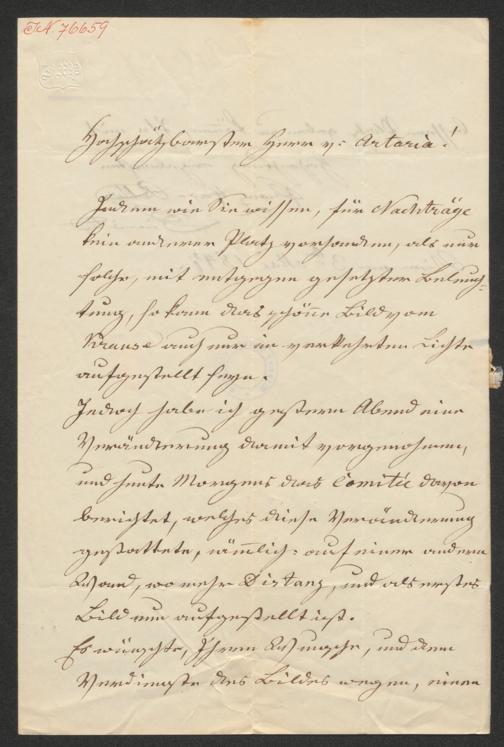 I.N. 76659
Hochschätzbarster Herr v: Artaria!
Indem wie Sie wissen, für Nachträge
kein anderer Platz vorhanden, als nur
solche, mit entgegen gesetzter Beleuch-
tung, so kann das schöne Bild vom
Krause auch nur in verkehrten Lichte
aufgestellt seyn.
Jedoch habe ich gestern Abend eine
Veränderung damit vorgenohmen,
und heute Morgens das Comitée davon
berichtet, welches diese Veränderung
gestattete, nämlich: auf einer andern
Wand, wo mehr Distanz, und als erstes
Bild nun aufgestellt ist.
Es wünschte, Ihrem Wunsche, und dem
Verdienste des Bildes wegen, einen